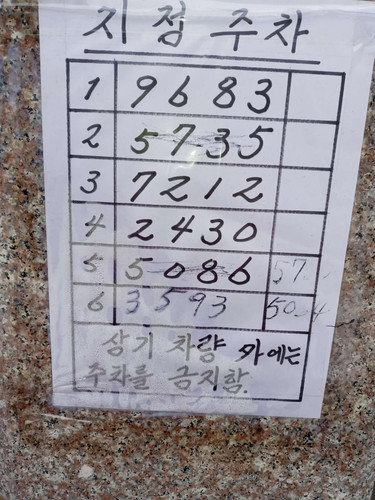 지점 주차
1 9683
2 5735
3 7212
4 2430
5 5086 57
6 3593
상기 차량 외에는
주차를 금지함.